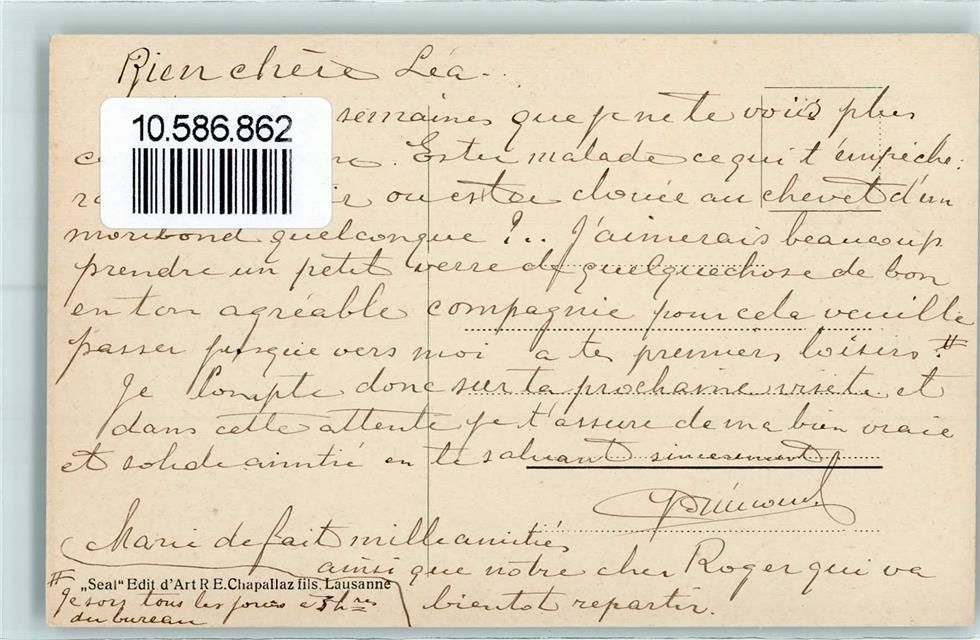 Bien chère Léa.
10.586.862
semaines que je ne te vois plus
Es tu malade ce qui t'empêche
ou es tu clouée au chevet d'un
moribond quelconque ?.. J'aimerais beaucoup
prendre un petit verre de quelque chose de bon
en ton agréable compagnie pour cela veuille
passer jusque vers moi a tes premiers loisirs #
Je compte donc sur ta prochaine visite et
dans cette attente je t'assure de ma bien vraie
et solide amitié en te saluant sincerement
Marie te fait mille amitiés
ainsi que notre cher Roger qui va
bientot repartir.
„Seal“ Edit d'Art R E. Chapallaz fils, Lausanne
# Je sors tous les jours à 5 hres
du bureau